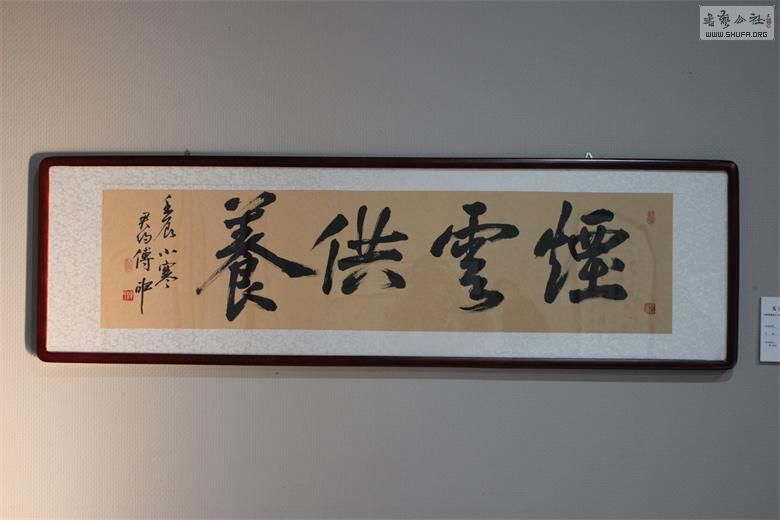 煙雲供養
壬辰小寒
君約傅申
書藝公社
WWW.SHUFA.ORG